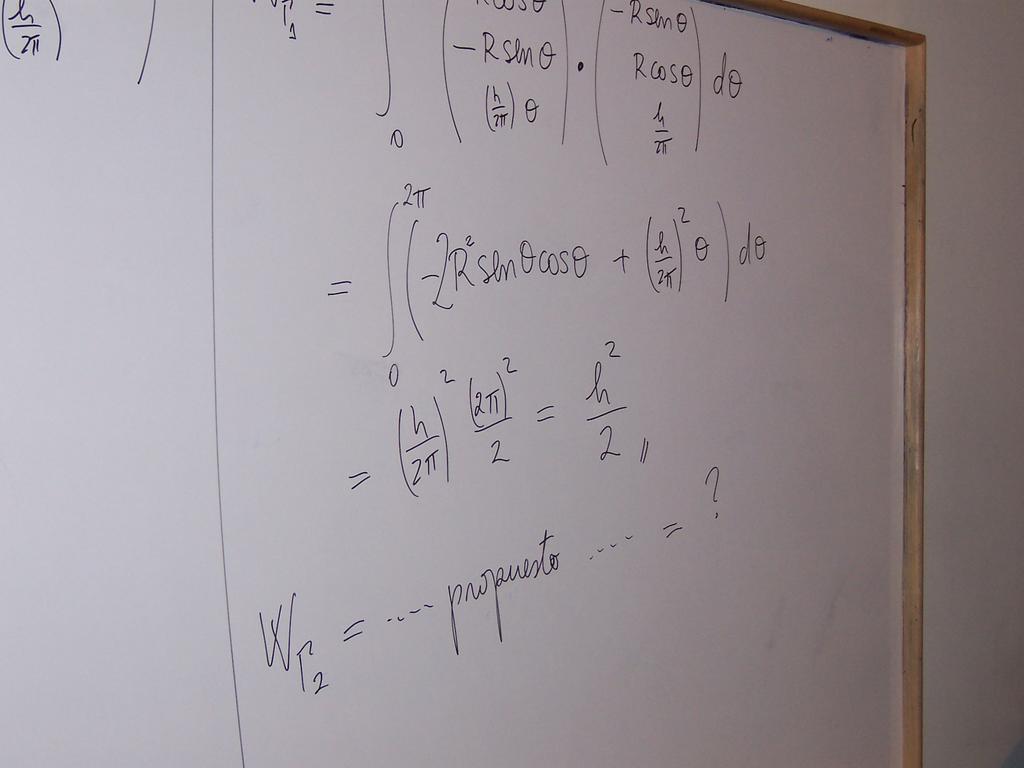 (h/2π)
W_Γ₁ = ∫₀ (Rcosθ, −Rsenθ, (h/2π)θ) · (−Rsenθ, Rcosθ, h/2π) dθ
= ∫₀^2π (−2R²senθcosθ + (h/2π)²θ) dθ
= (h/2π)² (2π)²/2 = h²/2 //
W_Γ₂ = ···· propuesto ···· = ?